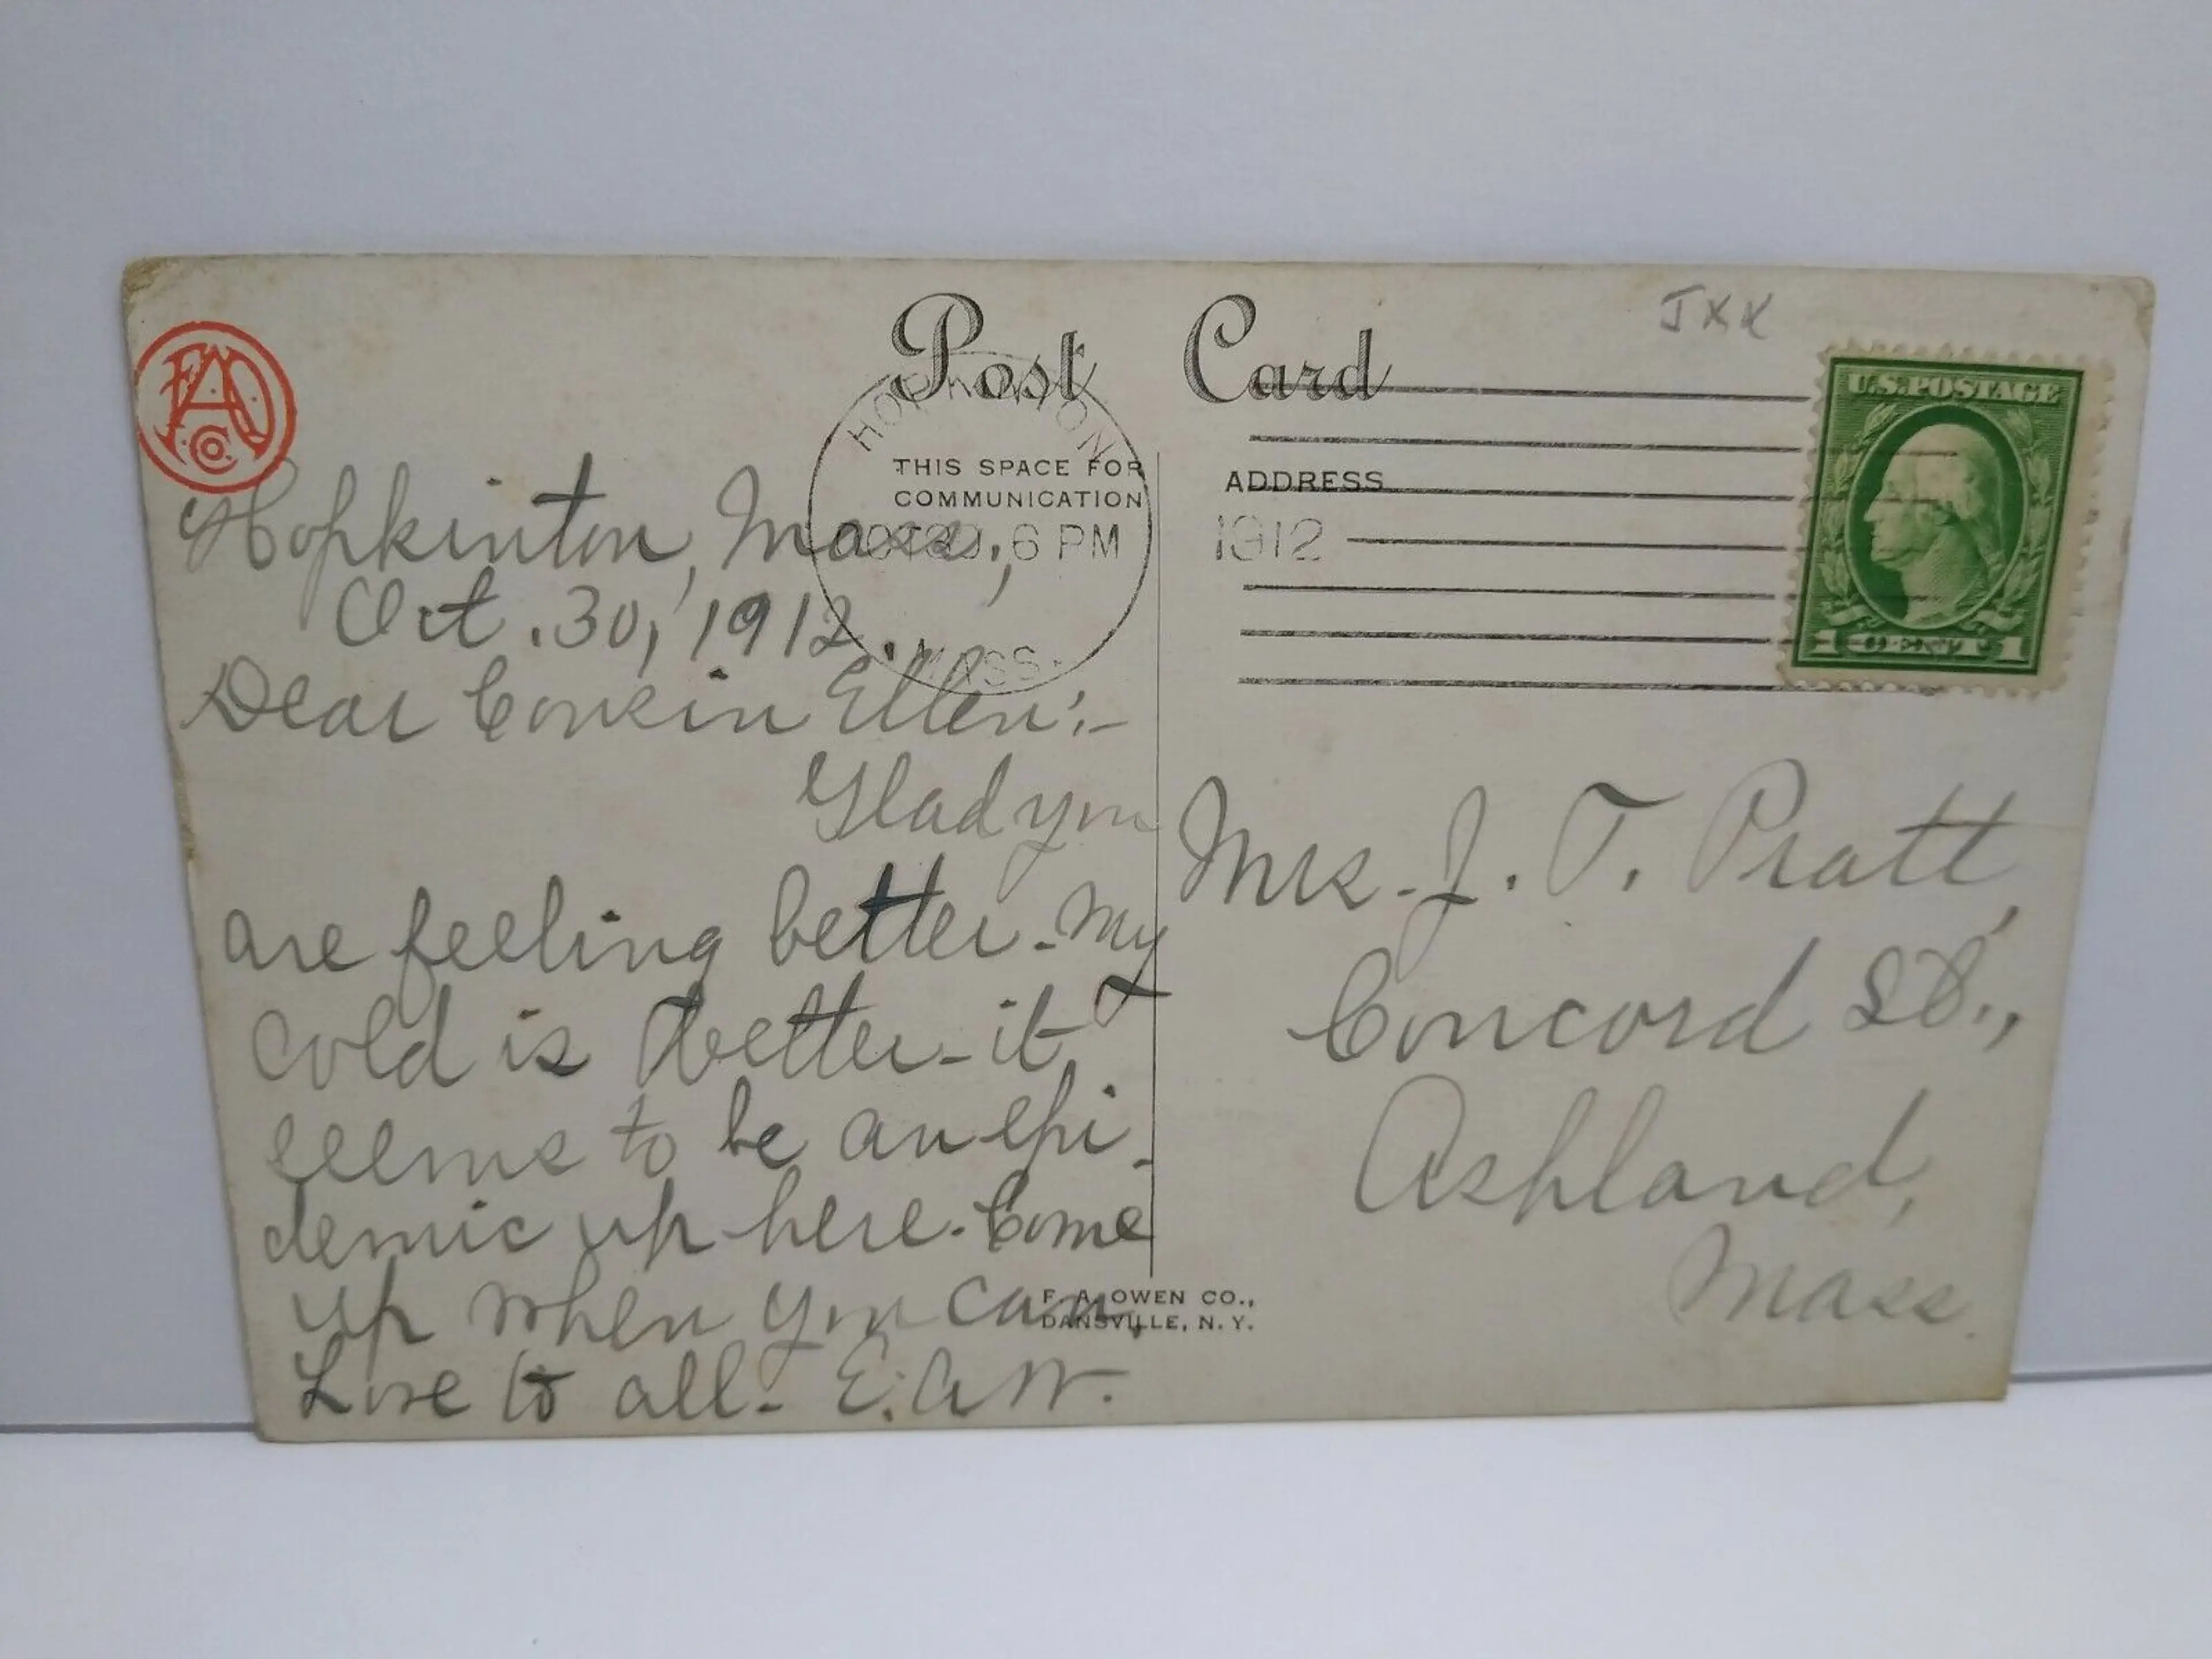 Post Card
JXX
FAO
Co
U.S. POSTAGE
1 CENT 1
HOPKINTON
OCT 30 6 PM
1912
MASS.
THIS SPACE FOR
COMMUNICATION
ADDRESS
Hopkinton, Mass.,
Oct. 30, 1912.
Dear Cousin Ellen:-
Glad you
are feeling better. My
cold is better - it
seems to be an epi-
demic up here. Come
up when you can.
Love to all - E.A.W.
Mrs. J. T. Pratt,
Concord St.,
Ashland,
Mass.
F. A. OWEN CO.,
DANSVILLE, N. Y.